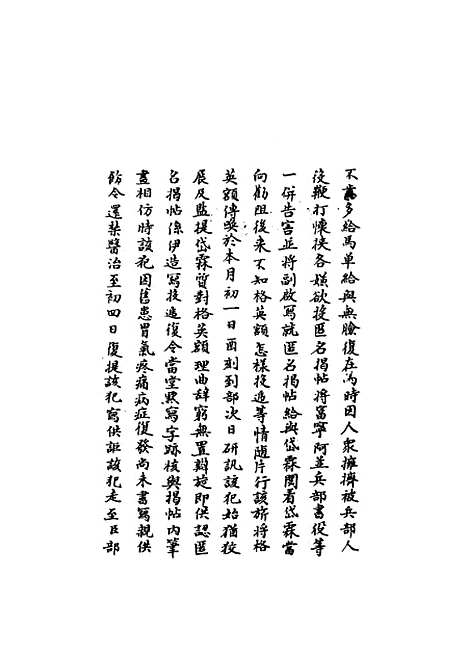 不肯多給馬單給與無臉復在為時因人衆擁擠被兵部人
役鞭打懷挾各嫌欲投匿名揭帖將富寧阿並兵部書役等
一併告害並將副啟寫就匿名揭帖給與岱霖閱看岱霖當
向勸阻後來不知格英額怎樣投遞等情隨片行該旂將格
英額傳喚於本月初一日酉刻到部次日研訊該犯始猶狡
展及監提岱霖質對格英額理曲辞窮無置辯旋即供認匿
名揭帖係伊造寫投遞復令當堂默寫字跡核與揭帖内筆
畫相仿時該犯因舊患胃氣疼痛病症復發尚未書寫親供
飭令還禁醫治至初四日復提該犯寫供詎該犯走至臣部